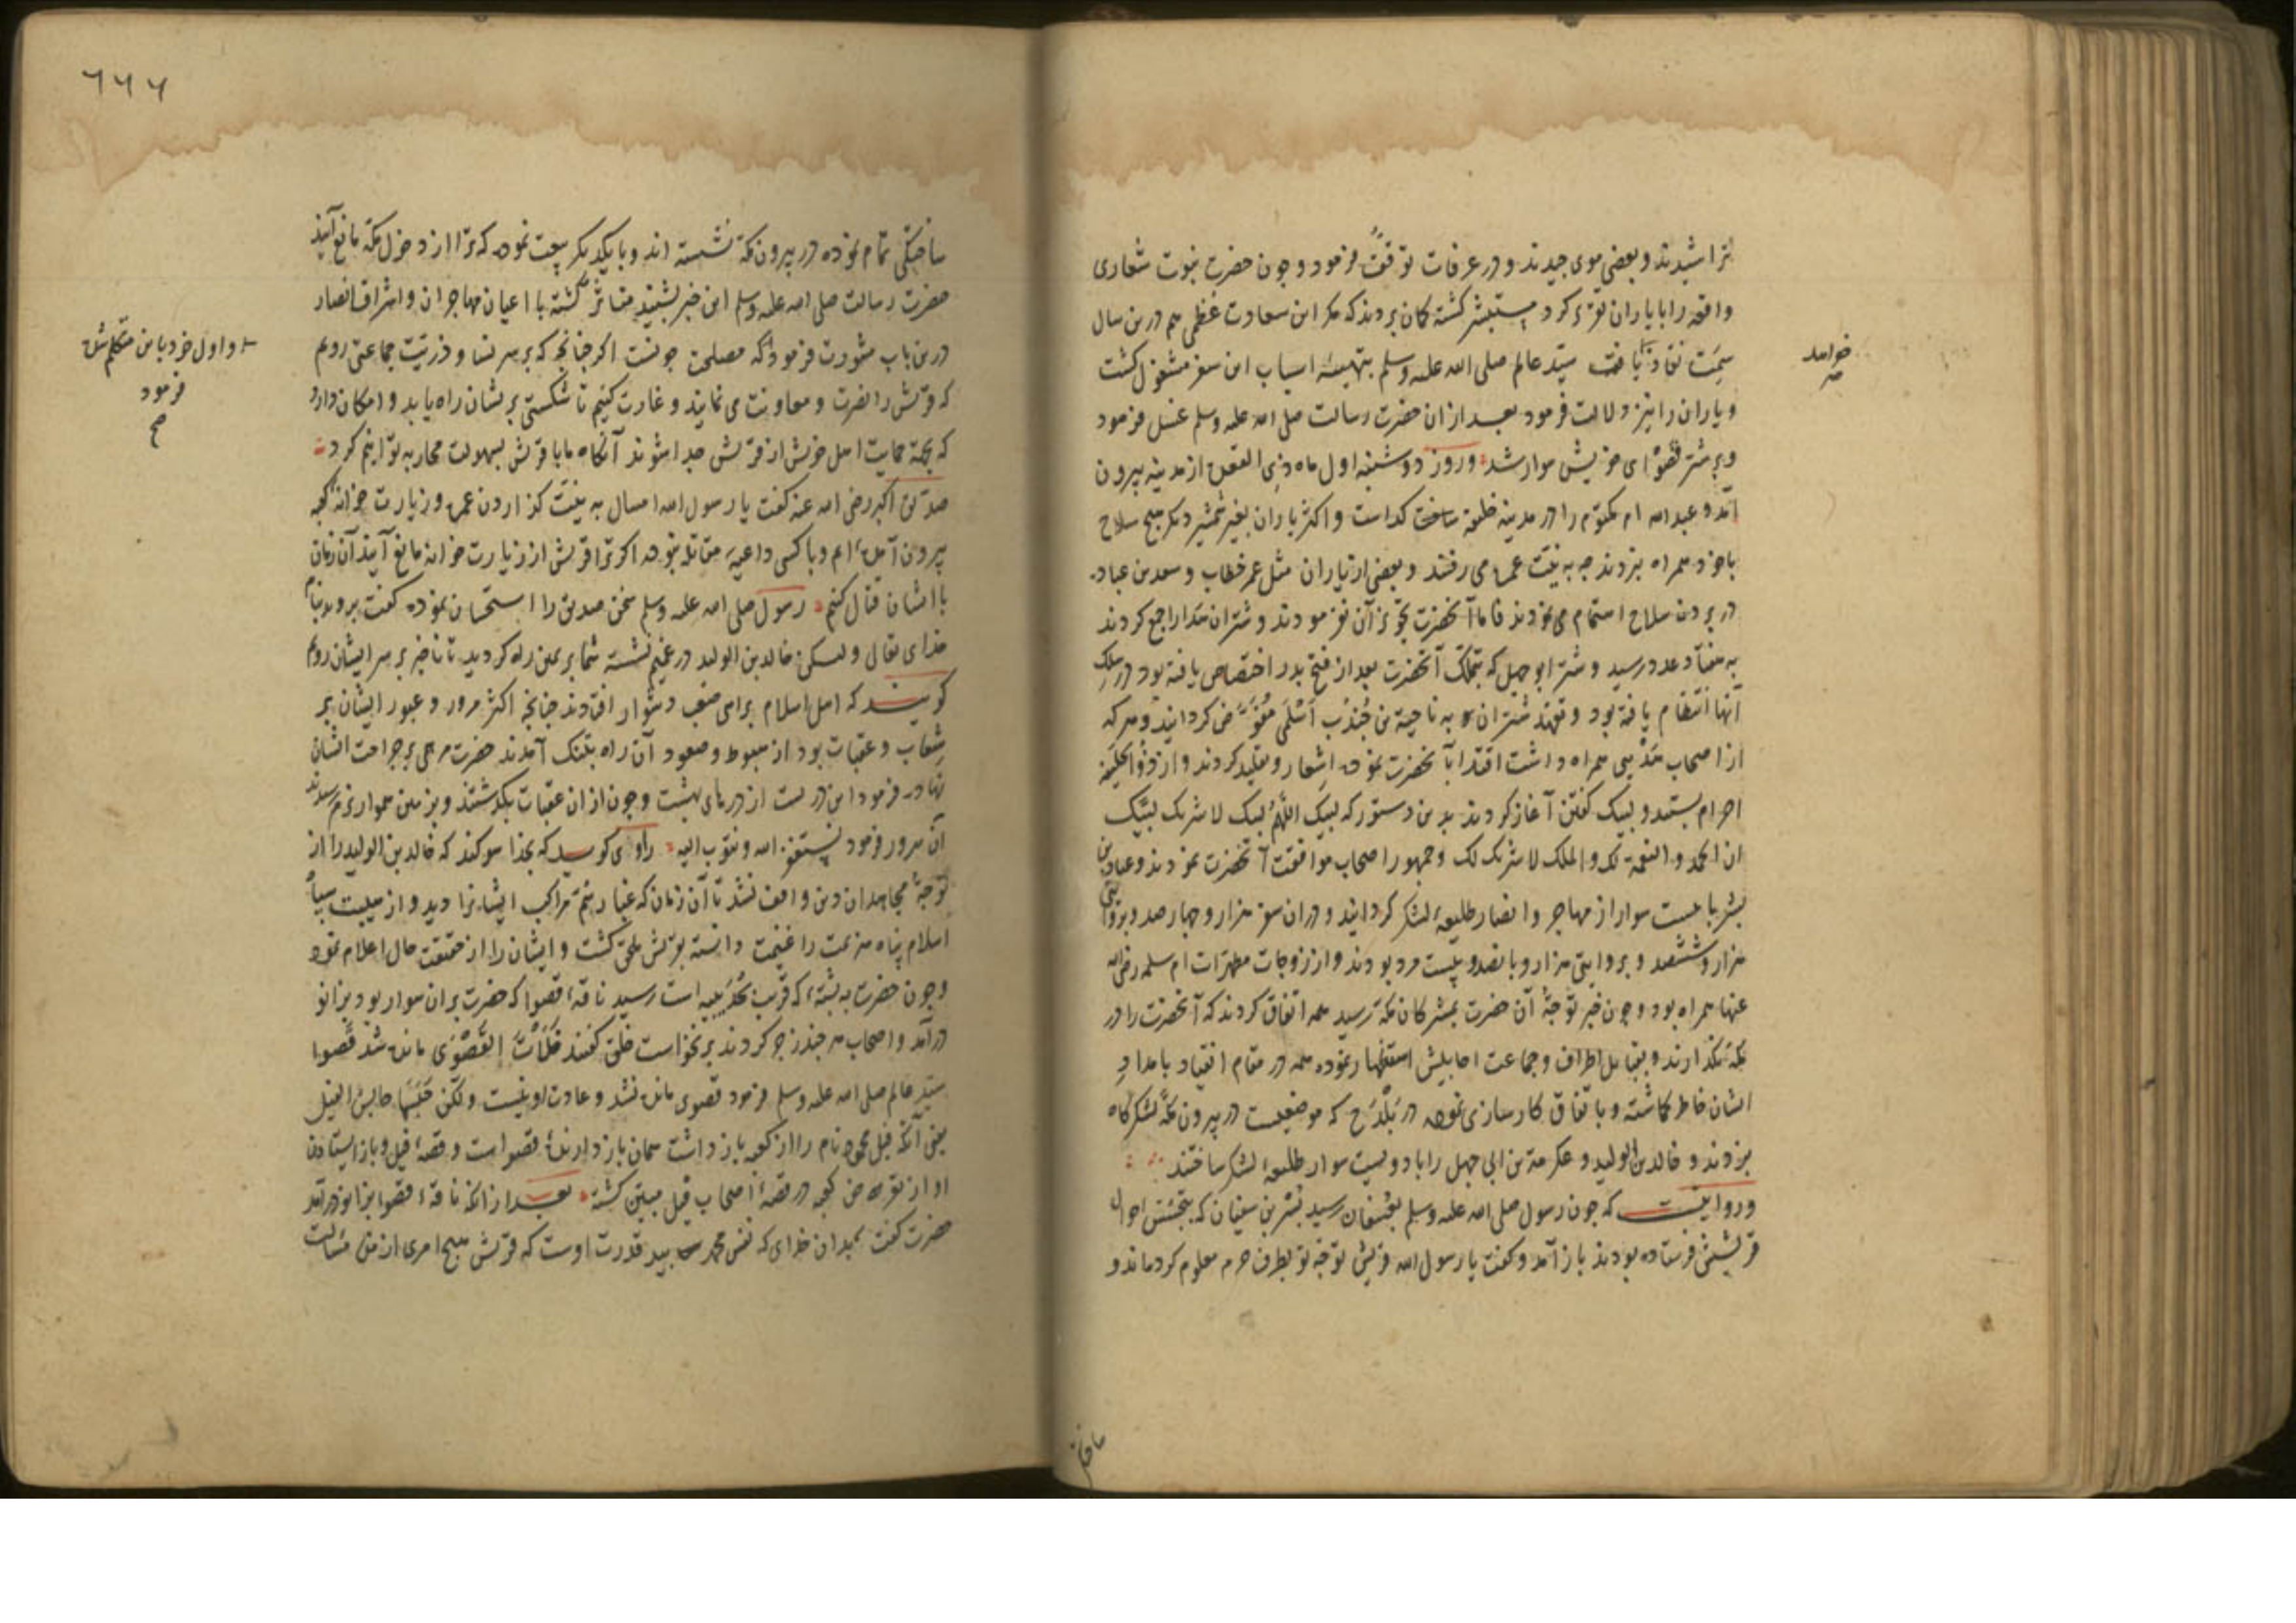 تراشیدند و بعضی موی چیدند و در عرفات توقف فرمود و چون حضرت نبوت شعاری
واقعه را با یاران تقریر کرد مستبشر کشته کمان بردند که مکر این سعادت عظمی هم درین سال
سمت نفاذ یافت سید عالم صلی الله علیه وسلم بتهیئه اسباب این سفر مشغول کشت
خواهد
و یاران را نیز دلالت فرمود بعد ازان حضرت رسالت صلی الله علیه وسلم غسل فرمود
و بر شتر قصوای خویش سوار شد و روز دوشنبه اول ماه ذی القعده از مدینه بیرون
آمد و عبد الله ام مکتوم را در مدینه خلیفه ساخت کذاست و اکثر یاران بغیر شمشیر دیکر هیچ سلاح
با خود همراه نبردند چه به نیت عمره می رفتند و بعضی از یاران مثل عمر خطاب و سعد بن عباده
در بردن سلاح اهتمام می نمودند فاما آنحضرت تجویز آن نفرمودند و شتران هدا را جمع کردند
به هفتاد عدد رسید و شتر ابو جهل که بتملک آنحضرت بعد از فتح بدر اختصاص یافته بود در سلک
آنها انتظام یافته بود و تعهد شتران به ناجیة بن جندب اسلمی مفوض کردانید و هرکه
از اصحاب هدیی همراه داشت اقتدا بآنحضرت نموده اشعار و تقلید کردند و از ذو الحلیفه
احرام بستند و لبیک کفتن آغاز کردند بدین دستور که لبیک اللهم لبیک لا شریک لبیک
ان الحمد و النعمة لک و الملک لا شریک لک و جمهور اصحاب موافقت آنحضرت نمودند و عباد بن
بشر با بیست سوار از مهاجر و انصار طلیعهٔ لشکر کردانید و دران سفر هزار و چهار صد و بروایتی
هزار و ششصد و بروایتی هزار و پانصد و بیست مرد بودند و از زوجات مطهرات ام سلمه رضی الله
عنها همراه بود و چون خبر توجه آن حضرت بمشرکان مکه رسید همه اتفاق کردند که آنحضرت را در
مکه نکذارند و بقبایل اطراف و جماعت احابیش استظهار نموده همه در مقام انقیاد بامداد
ایشان خاطر کماشته و باتفاق کارسازی نموده در بلدح که موضعیست در بیرون مکه لشکرکاه
بزدند و خالد بن الولید و عکرمة بن ابی جهل را با دویست سوار طلیعهٔ لشکر ساختند
و روایتست که چون رسول صلی الله علیه وسلم بعسفان رسید بشر بن سفیان که بتجسس احوال
قریشش فرستاده بودند باز آمد و کفت یا رسول الله قریش توجه تو بطرف حرم معلوم کرده‌اند و
ساختکی تمام نموده در بیرون مکه نشسته اند و با یکدیکر بیعت نموده که ترا از دخول مکه مانع آیند
حضرت رسالت صلی الله علیه وسلم این خبر بشنید متاثر کشته با اعیان مهاجران و اشراف انصار
درین باب مشورت فرمود که مصلحت چونست اکر چنانچه که بر سر نسا و ذریت جماعتی رویم
و اول خود باین متکلم شده
فرمود
صح
که قریش را نصرت و معاونت می نمایند و غارت کنیم تا شکستی بریشان راه یابد و امکان دارد
که بجهة حمایت اهل خویش از قریش جدا شوند آنکاه ما با قریش بسهولت محاربه توانیم کرد
صدیق اکبر رضی الله عنه کفت یا رسول الله امسال به نیت کزاردن عمره و زیارت خانهٔ کعبه
بیرون آمده ایم و با کسی داعیهٔ مقاتله نبوده اکر ترا قریش از زیارت خانه مانع آیند آن زمان
با ایشان قتال کنیم رسول صلی الله علیه وسلم سخن صدیق را استحسان نموده کفت بروید بنام
خدای تعالی ولیکن خالد بن الولید در غمیم نشسته شما برین راه کردید تا ناخبر بر سر ایشان رویم
کویند که اهل اسلام براهی صعب دشوار افتادند چنانچه اکثر مرور و عبور ایشان بر
شعاب و عقبات بود از هبوط و صعود آن راه بتنک آمدند حضرت مرهمی بر جراحت ایشان
نهاد و فرمود این دریست از درهای بهشت و چون ازان عقبات بکذشتند و بزمین هموار رسیدند
آن سرور فرمود نستغفر الله و نتوب الیه راوی کوید که بخدا سوکند که خالد بن الولید را از
توجه مجاهدان دین وقوف نشد تا آن زمان که غبار سم مراکب ایشانرا دید و از هیبت سپاه
اسلام پناه هزیمت را غنیمت دانسته بقریش ملحق کشت و ایشان را از حقیقت حال اعلام نمود
و چون حضرت به ثنیهٔ که قریب حدیبیه است رسید ناقهٔ قصوا که حضرت بران سوار بود بزانو
درآمد و اصحاب هر چند زجر کردند برنخواست خلق کفتند خلأت القصوی مانده شد قصوا
سید عالم صلی الله علیه وسلم فرمود قصوی مانده نشد و عادت او نیست ولکن حبسها حابس الفیل
یعنی آنکه فیل محمود نام را از کعبه باز داشت همان باز دارندهٔ قصوا است و قصهٔ فیل و باز ایستادن
او از تعرض کعبه در قصهٔ اصحاب فیل مبین کشته بعد از آنکه ناقهٔ قصوا بزانو درآمد
حضرت کفت بدان خدای که نفس محمد بید قدرت اوست که قریش هیچ امری از من مسالت